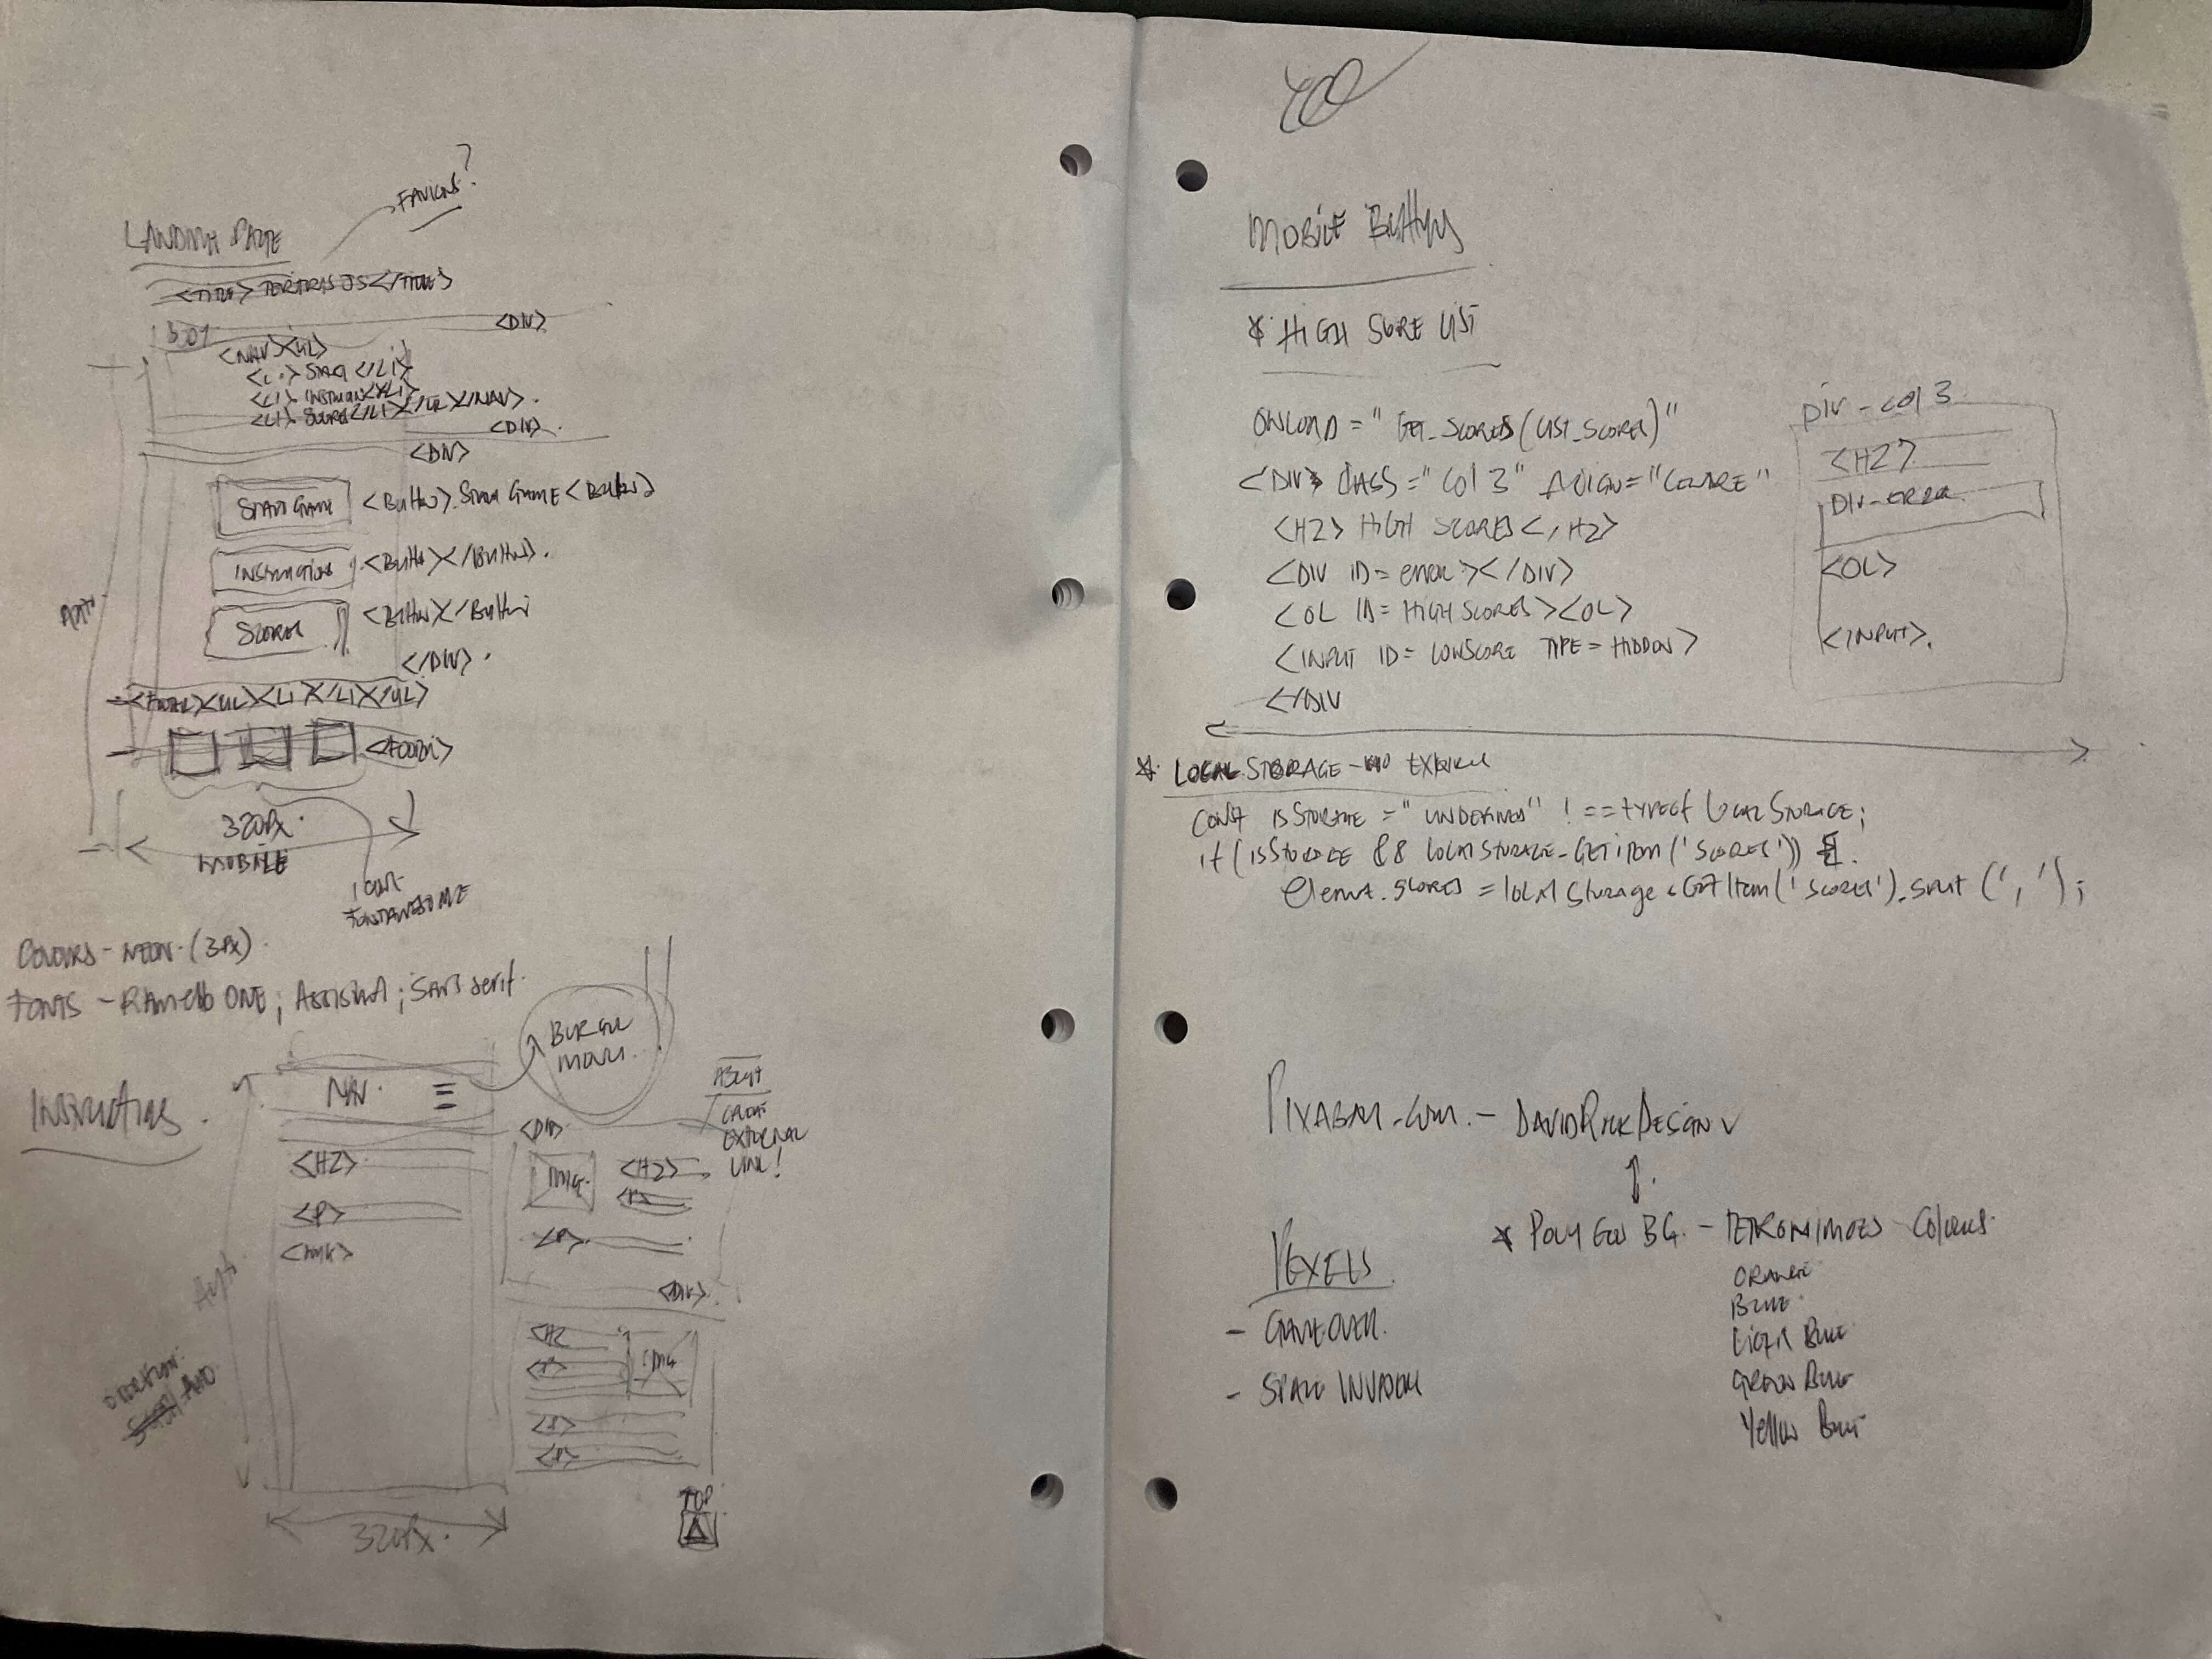 FAVICONS?
LANDING PAGE
<TITLE> TETRIS JS </TITLE>
BODY
<DIV>
<NAV><UL>
<LI> START </LI>
<LI> </LI>
<LI> SCORES </LI></UL></NAV>.
<DIV>.
<DIV>
START GAME <BUTTON>. START GAME <BUTTON>
INSTRUCTIONS <BUTTON></BUTTON>.
SCORES <BUTTON></BUTTON
</DIV>.
<FOOTER><UL><LI></LI></UL>
<FOOTER>
320PX.
MOBILE
ICON-
FONTAWESOME
COLOURS - NEON - (3PX).
FONTS - RAMETTO ONE; ASSISTANT; SANS SERIF.
INSTRUCTIONS.
NAV.
BURGER
MENU.
<H2>
<P>
<DIV>
IMG.
<H2>
<P>
<P>.
<DIV>.
ABOUT
EXTERNAL
LINK!
<H2
<P>
IMG
<P>
<P>
320PX.
TOP
MOBILE BUTTONS
* HIGH SCORE LIST
ONLOAD = "GET_SCORES(LIST_SCORES)"
<DIV> CLASS = "COL 3" ALIGN = "CENTRE"
<H2> HIGH SCORES <,H2>
<DIV ID = ERROR></DIV>
<OL ID = HIGH SCORES><OL>
<INPUT ID = LOWSCORE TYPE = HIDDEN>
</DIV
DIV-COL 3
<H2>
DIV-ERROR
<OL>
<INPUT>.
* LOCAL STORAGE - NO
CONST ISSTORAGE = "UNDEFINED" !== TYPEOF LOCALSTORAGE;
if (ISSTORAGE && LOCALSTORAGE.GETITEM('SCORES')) {.
Element.SCORES = local Storage.GetItem('SCORES').SPLIT(',');
PIXABAY.COM. - DAVIDROCKDESIGN
* POLYGON BG. - TETROMINOES COLOURS.
ORANGE
BLUE.
LIGHT BLUE
GREEN BLUE
Yellow BLUE
PEXELS
- GAMEOVER.
- SPACE INVADER